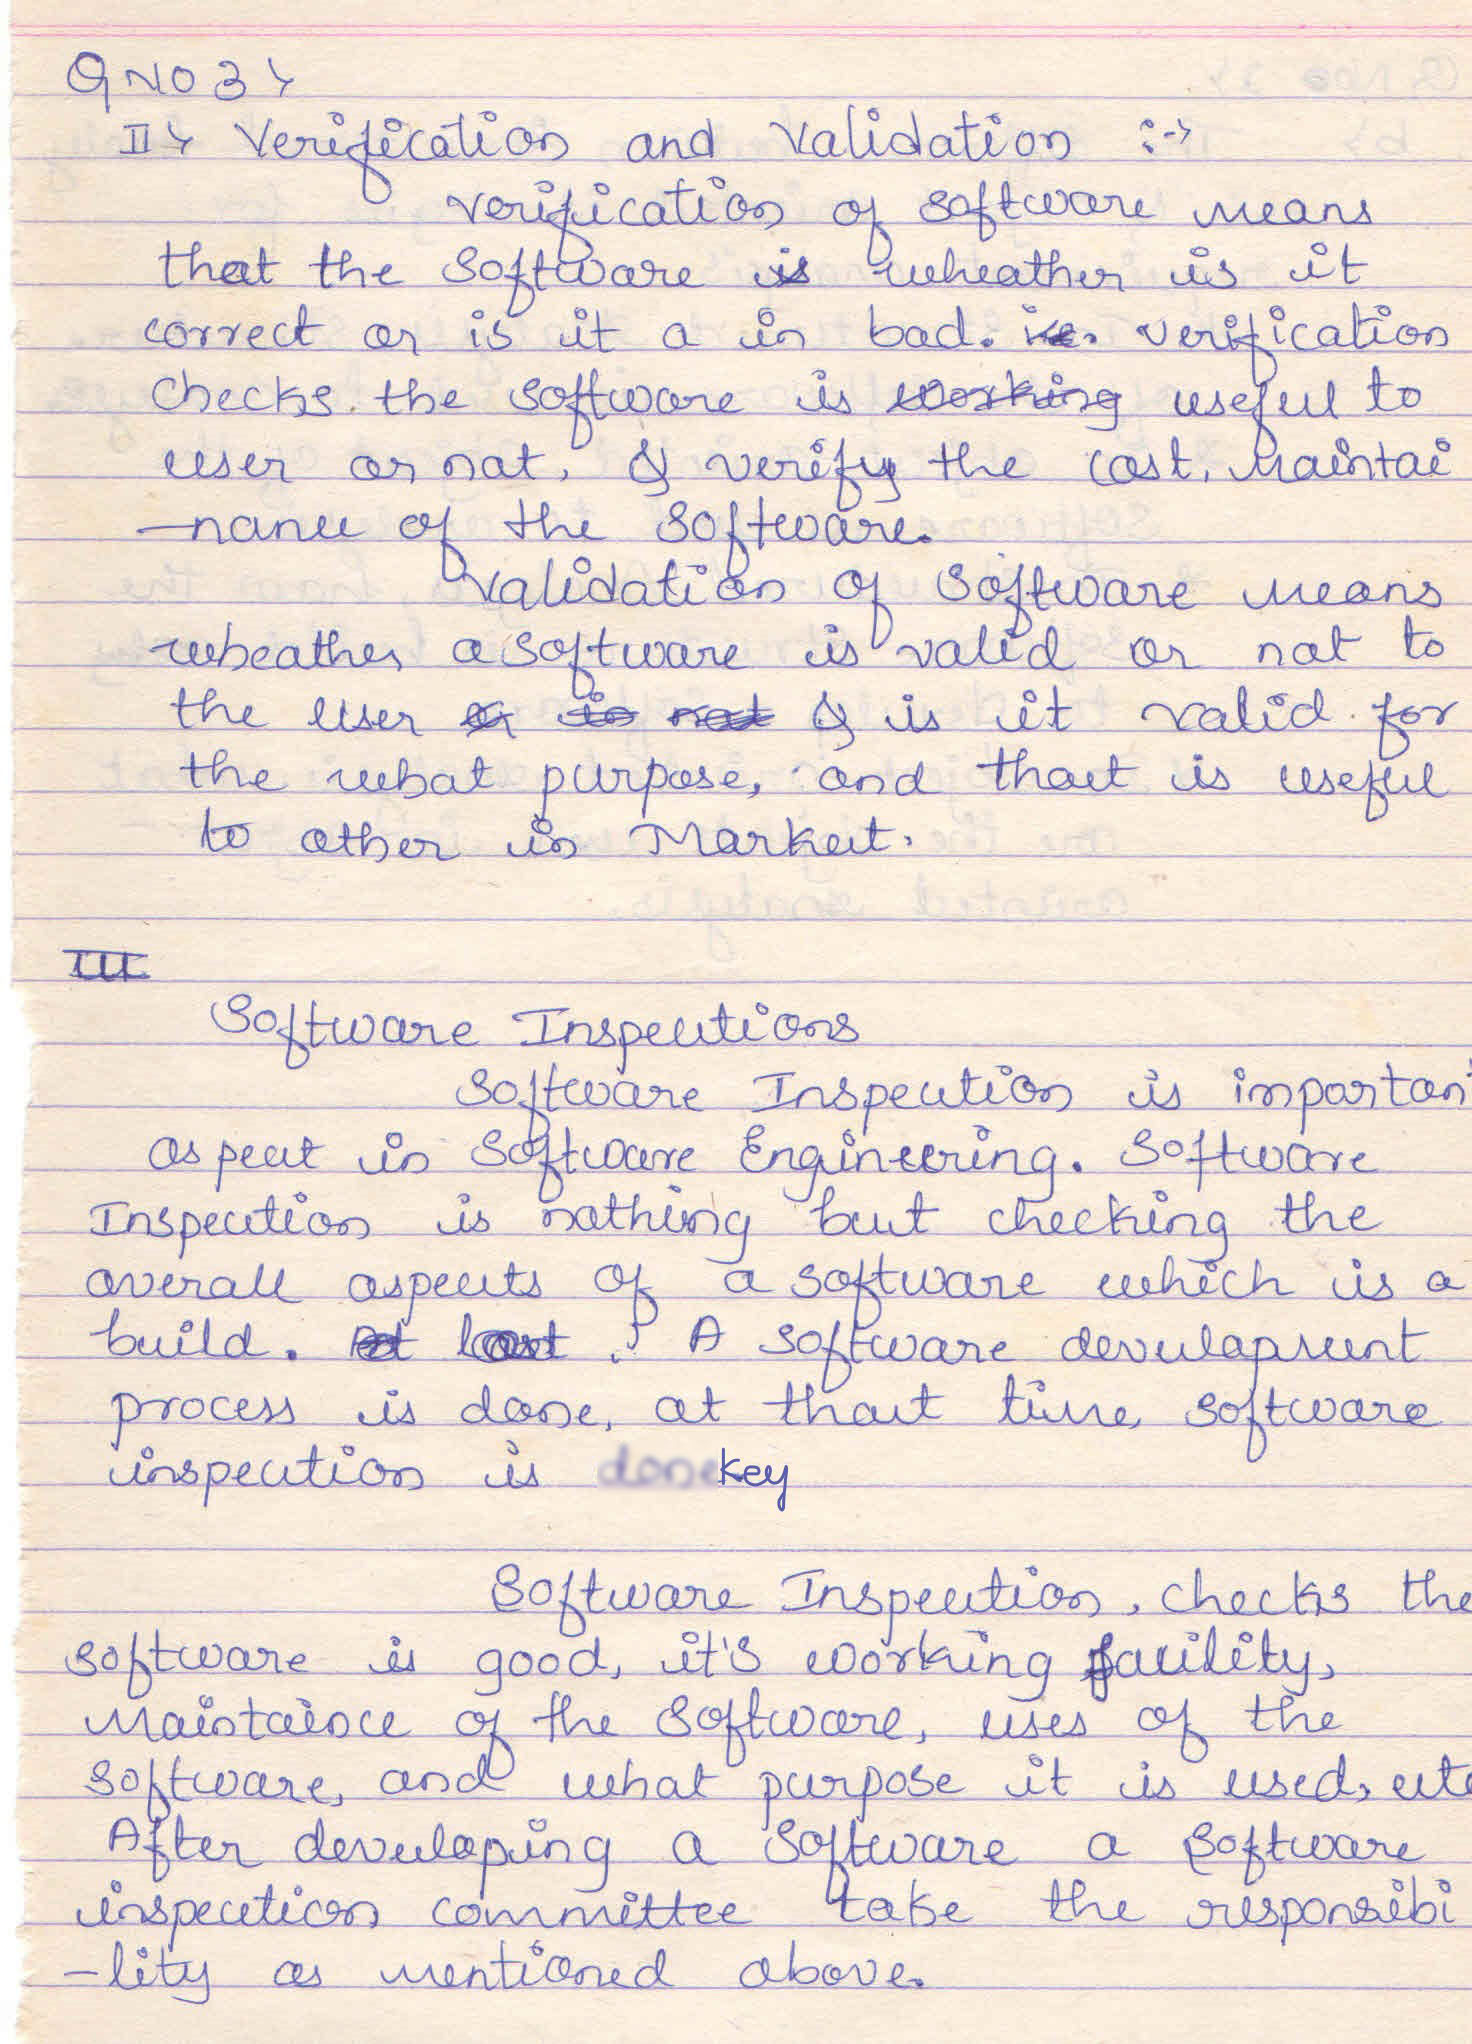 QNO 3>
II> Verification and Validation :->
Verification of software means
that the software is wheather is it
correct or is it a in bad. i.e. verification
checks the software is working useful to
user or not, & verify the cost, Maintai
-nance of the software.
Validation of software means
wheather a software is valid or not to
the user or is not & is it valid for
the what purpose, and that is useful
to other in Market.
III
Software Inspections
Software Inspection is importan
aspect in Software Engineering. Software
Inspection is nothing but checking the
overall aspects of a software which is a
build. At last . A software development
process is done, at that time software
inspection is key
Software Inspection, checks the
software is good, it's working facility,
Maintaince of the software, uses of the
software, and what purpose it is used, etc
After developing a software a software
inspection committee take the responsibi
-lity as mentioned above.